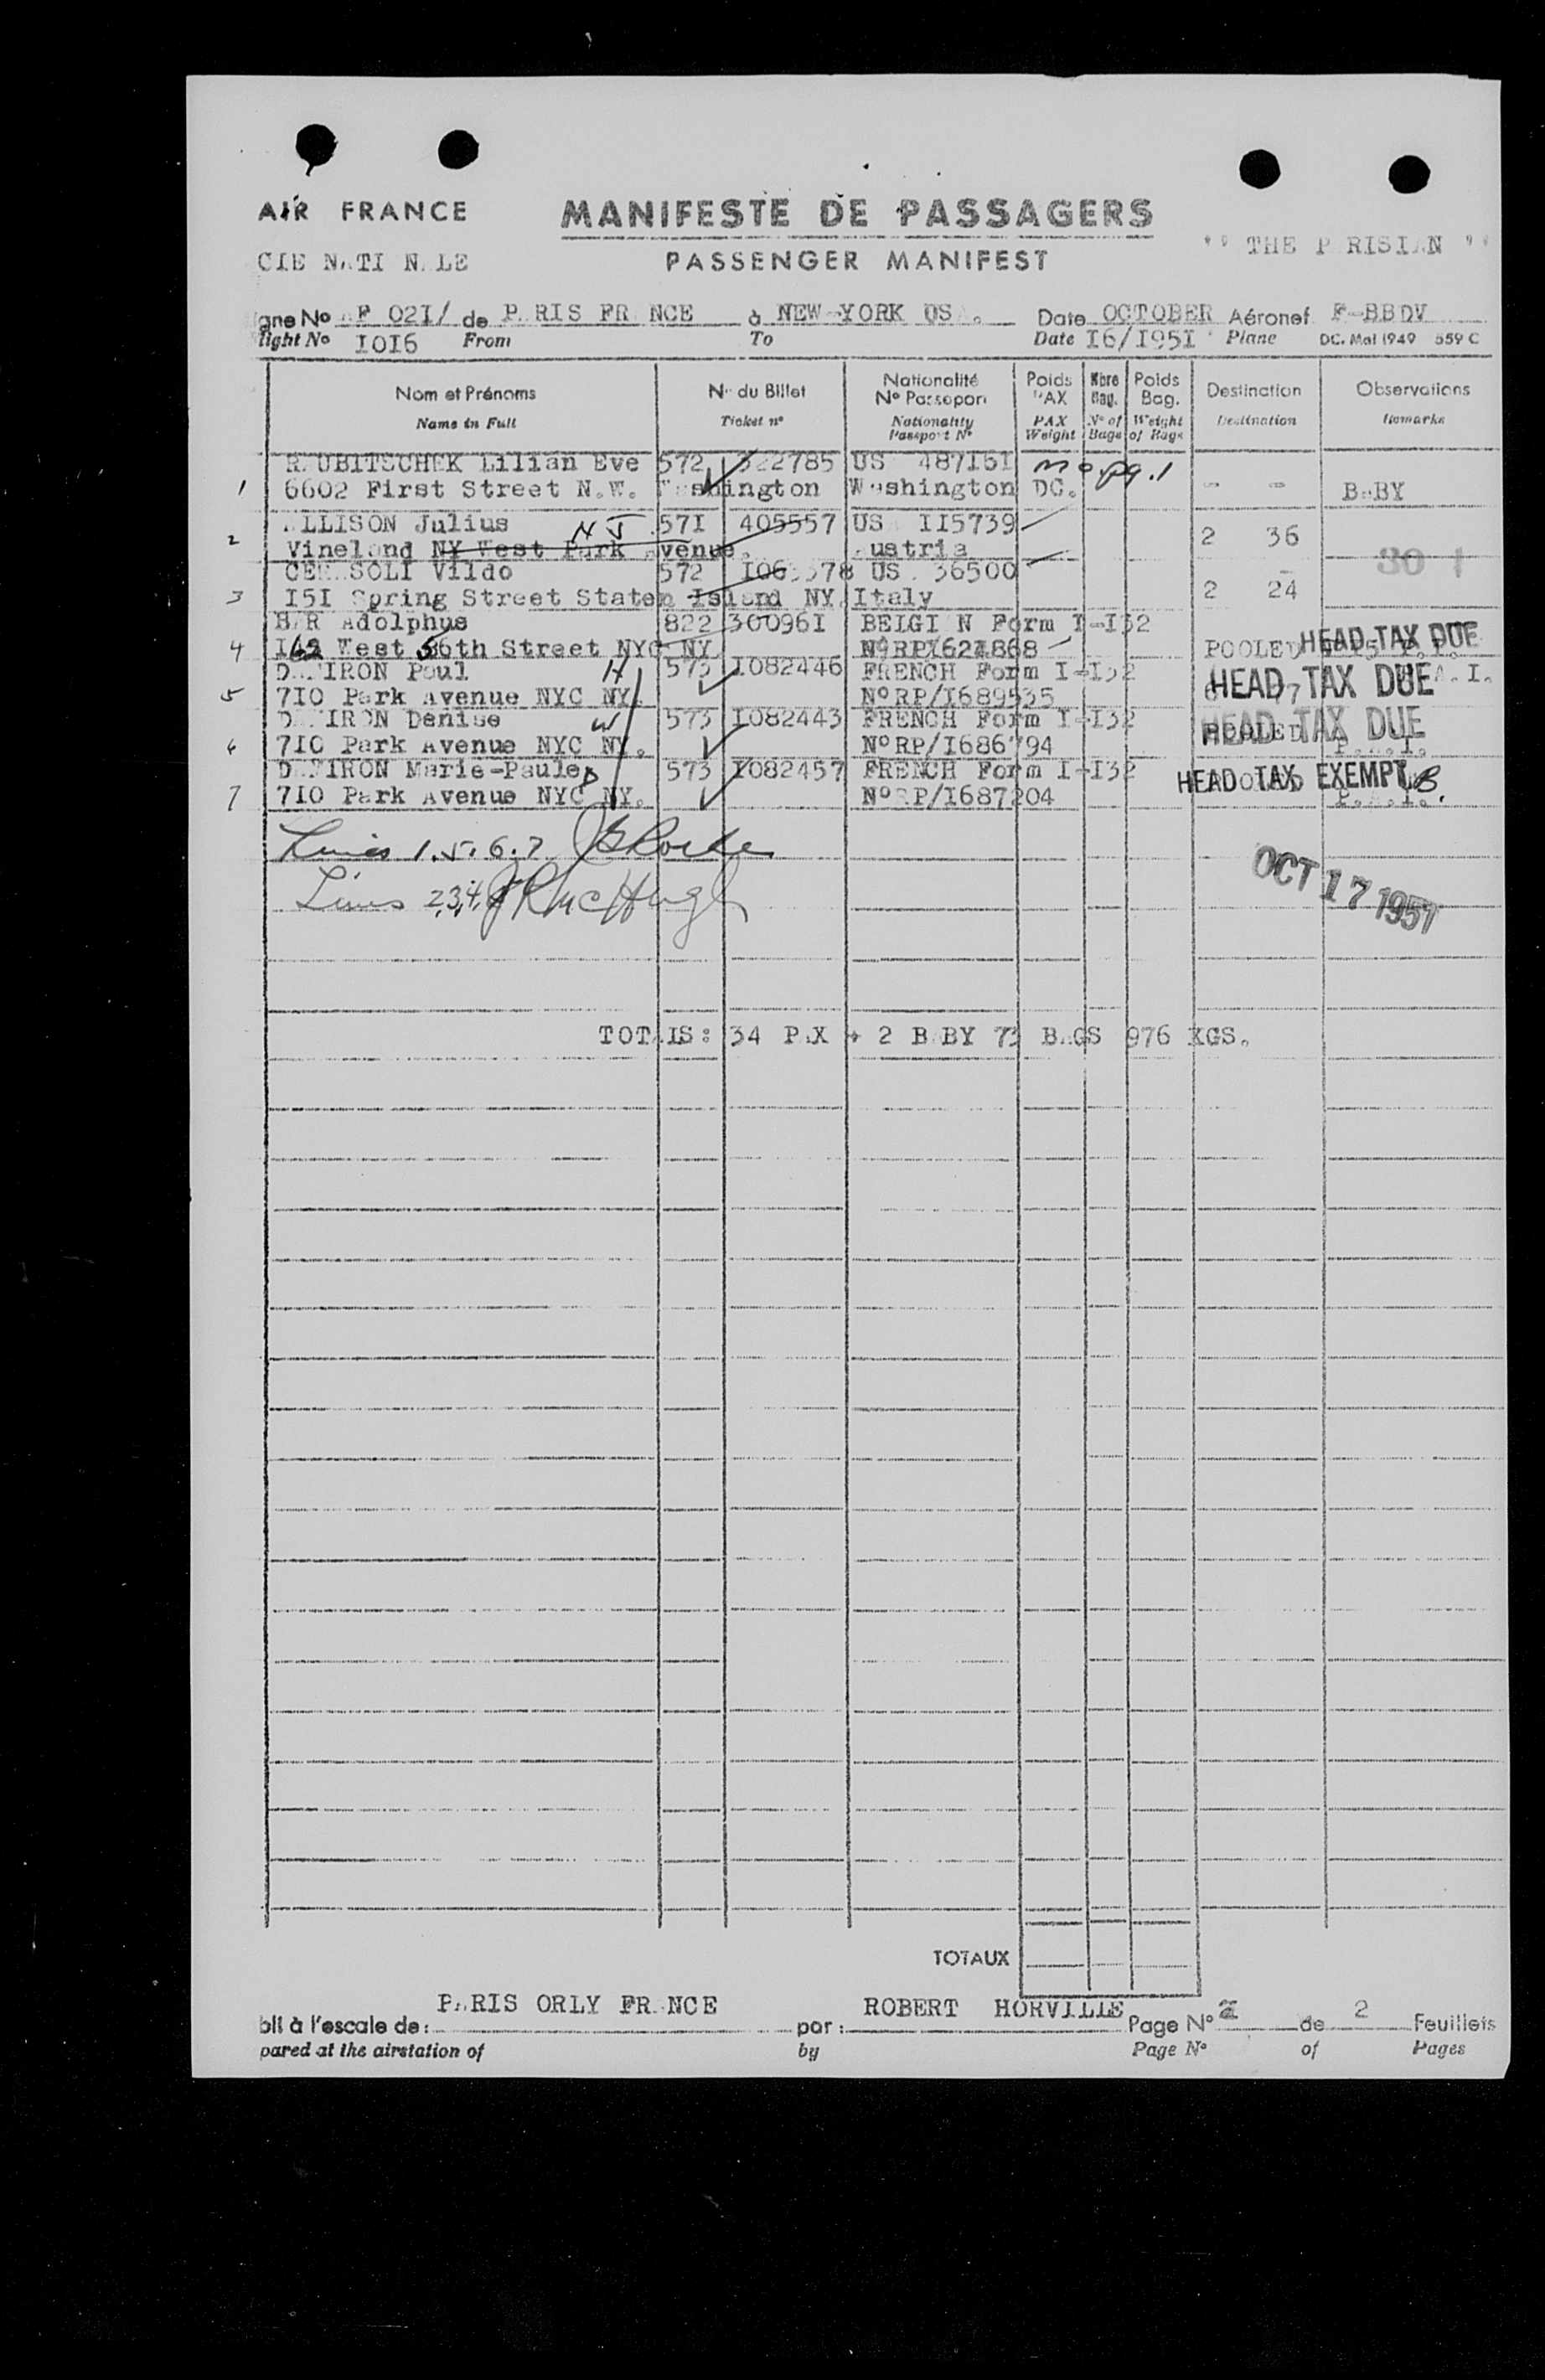 AIR FRANCE MANIFESTE DE PASSAGERS
CIE NATI N LE PASSENGER MANIFEST " THE P RISIAN "
gne No AF 02I/ de P RIS FR NCE à NEW-YORK US . Date OCTOBER Aéronef F-BBDV
light No IOI6 From To Date I6/I95I Plane DC. Mai 1949 559 C
Nom et Prénoms N° du Billet Nationalité N° Passeport Poids PAX Nbre Bag. Poids Bag. Destination Observations
Name in Full Ticket n° Nationality Passport N° PAX Weight N° of Bags Weight of Bags Destination Remarks
R UBITSCHEK Lilian Eve 572 322785 US 487I6I m o pg. 1
1 6602 First Street N.W. Washington Washington DC. - - B BY
LLISON Julius N J 57I 405557 US II5739
2 Vineland NY West Park venue. ustria 2 36
30 1
CE SOLI Vildo 572 US 36500
3 I5I Spring Street Staten Island NY Italy 2 24
B R Adolphus 822 30096I BELGI N Form I-I32
4 West 56th Street NYC NY POOLED HEAD TAX DUE
D IRON Paul H 573 I082446 FRENCH Form I-I32
5 7I0 Park Avenue NYC NY. N°RP/I689535 HEAD TAX DUE A.I.
D IRON Denise W 573 I082443 FRENCH Form I-I32
6 7I0 Park Avenue NYC NY. N°RP/I686794 HEAD TAX DUE
D IRON Marie-Paule D 573 I082457 FRENCH Form I-I32
7 7I0 Park Avenue NYC NY. N° RP/I687204 HEAD TAX EXEMPT
Lines 1.5.6.7
Lines 2,3,4, McHugh
OCT 17 1951
TOT LS: 34 P X + 2 B BY 73 B GS 976 KGS.
TOTAUX
bli à l'escale de: P RIS ORLY FR NCE par: ROBERT HORVILLE Page N° 2 de 2 Feuillets
pared at the airstation of by Page N° of Pages